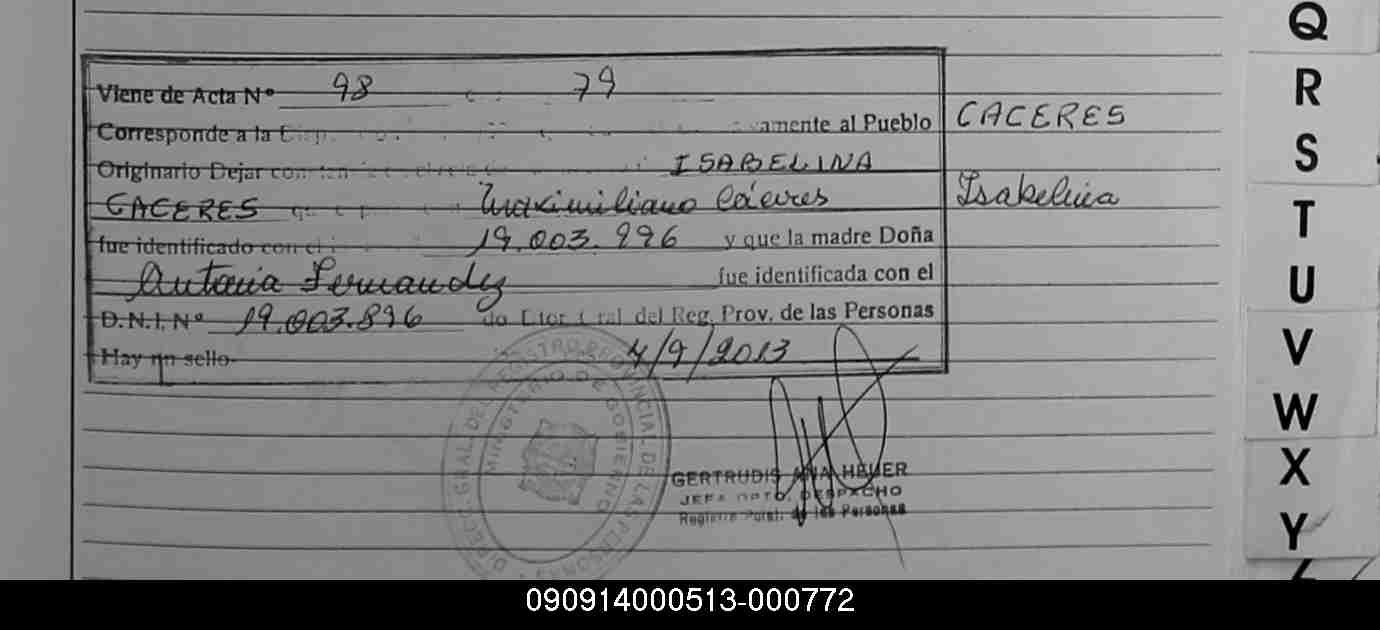 Viene de Acta Nº 98 79
Corresponde a la amente al Pueblo
Originario Dejar ISABELINA
CACERES Maximiliano Cáceres
fue identificado con el 19.003.996 y que la madre Doña
Antonia Fernandez fue identificada con el
D.N.I. Nº 19.003.896 do Dtor. Gral del Reg. Prov. de las Personas
Hay un sello 4/9/2013
CACERES
Isabelina
DIRECC. GRAL. DEL REGISTRO PROVINCIAL DE LAS PERSONAS
MINISTERIO DE GOBIERNO
GERTRUDIS ANA HEUER
JEFA DPTO. DESPACHO
Registro de las Personas
Q
R
S
T
U
V
W
X
Y
Z
090914000513-000772